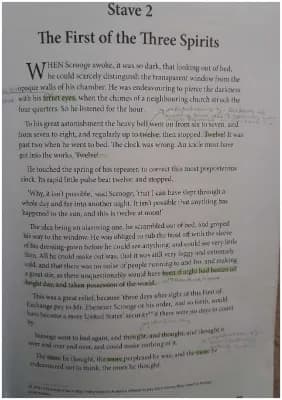 Stave 2
The First of the Three Spirits
WHEN Scrooge awoke, it was so dark, that looking out of bed,
he could scarcely distinguish the transparent window from the
opaque walls of his chamber. He was endeavouring to pierce the darkness
with his ferret eyes, when the chimes of a neighbouring church struck the
four quarters. So he listened for the hour.
To his great astonishment the heavy bell went on from six to seven, and
from seven to eight, and regularly up to twelve; then stopped. Twelve! It was
past two when he went to bed. The clock was wrong. An icicle must have
got into the works. Twelve!
He touched the spring of his repeater, to correct this most preposterous
clock. Its rapid little pulse beat twelve: and stopped.
'Why, it isn't possible,' said Scrooge, 'that I can have slept through a
whole day and far into another night. It isn't possible that anything has
happened to the sun, and this is twelve at noon!'
The idea being an alarming one, he scrambled out of bed, and groped
his way to the window. He was obliged to rub the frost off with the sleeve
of his dressing-gown before he could see anything; and could see very little
then. All he could make out was, that it was still very foggy and extremely
cold, and that there was no noise of people running to and fro, and making
a great stir, as there unquestionably would have been if night had beaten off
bright day, and taken possession of the world.
This was a great relief, because 'three days after sight of this First of
Exchange pay to Mr. Ebenezer Scrooge or his order,' and so forth, would
have become a mere United States' security if there were no days to count
by.
Scrooge went to bed again, and thought, and thought, and thought it
over and over and over, and could make nothing of it.
The more he thought, the more perplexed he was; and the more he
endeavoured not to think, the more he thought.